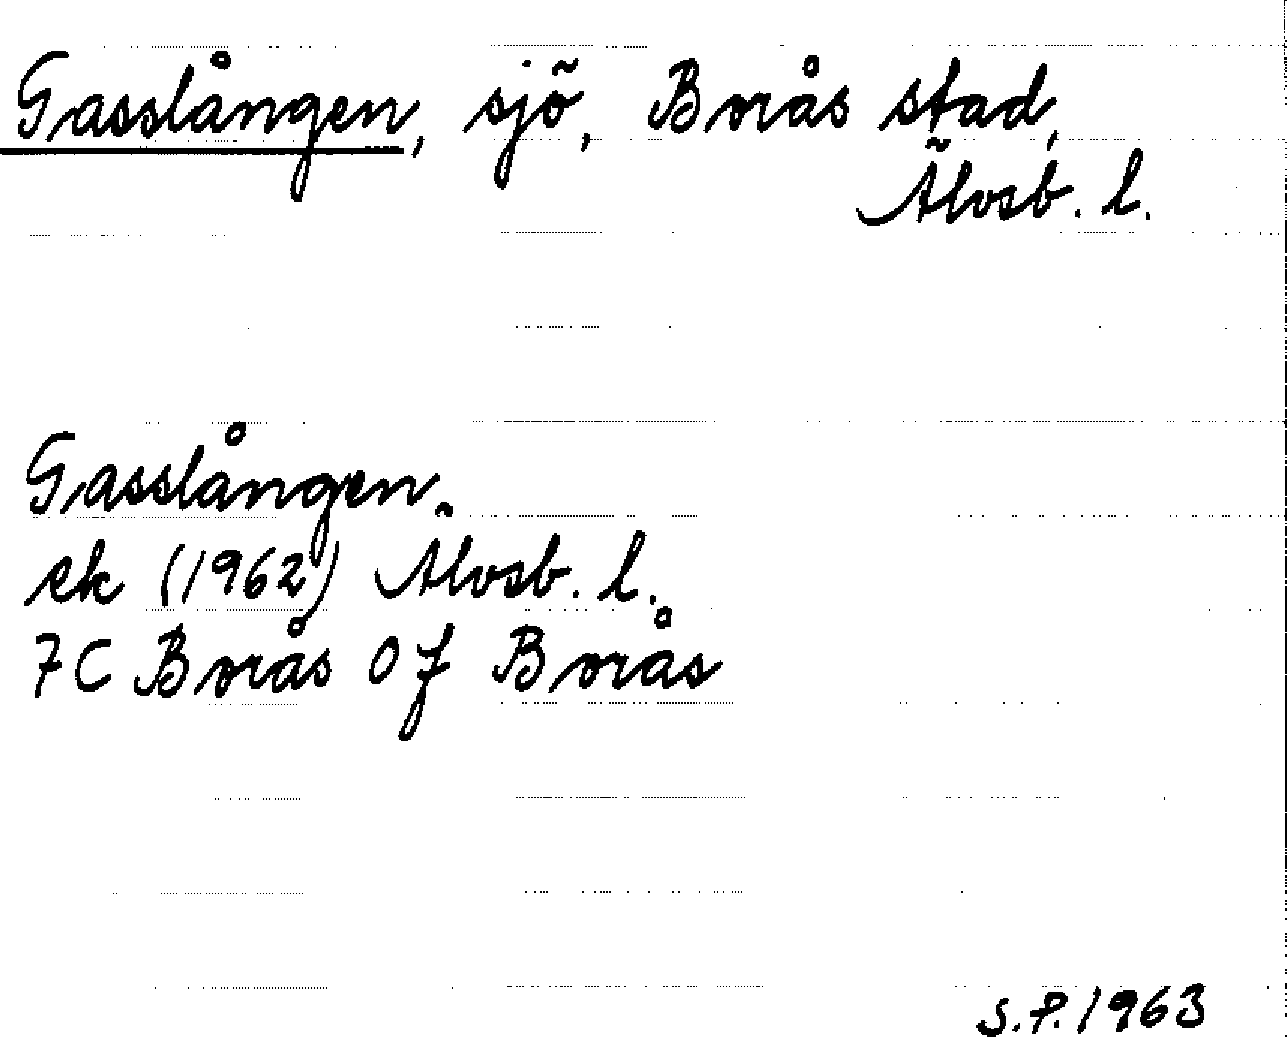 Gasslången, sjö, Borås stad,
Älvsb. l.
Gasslången.
ek (1962) Älvsb. l.
7C Borås 0f Borås
S.P. 1963